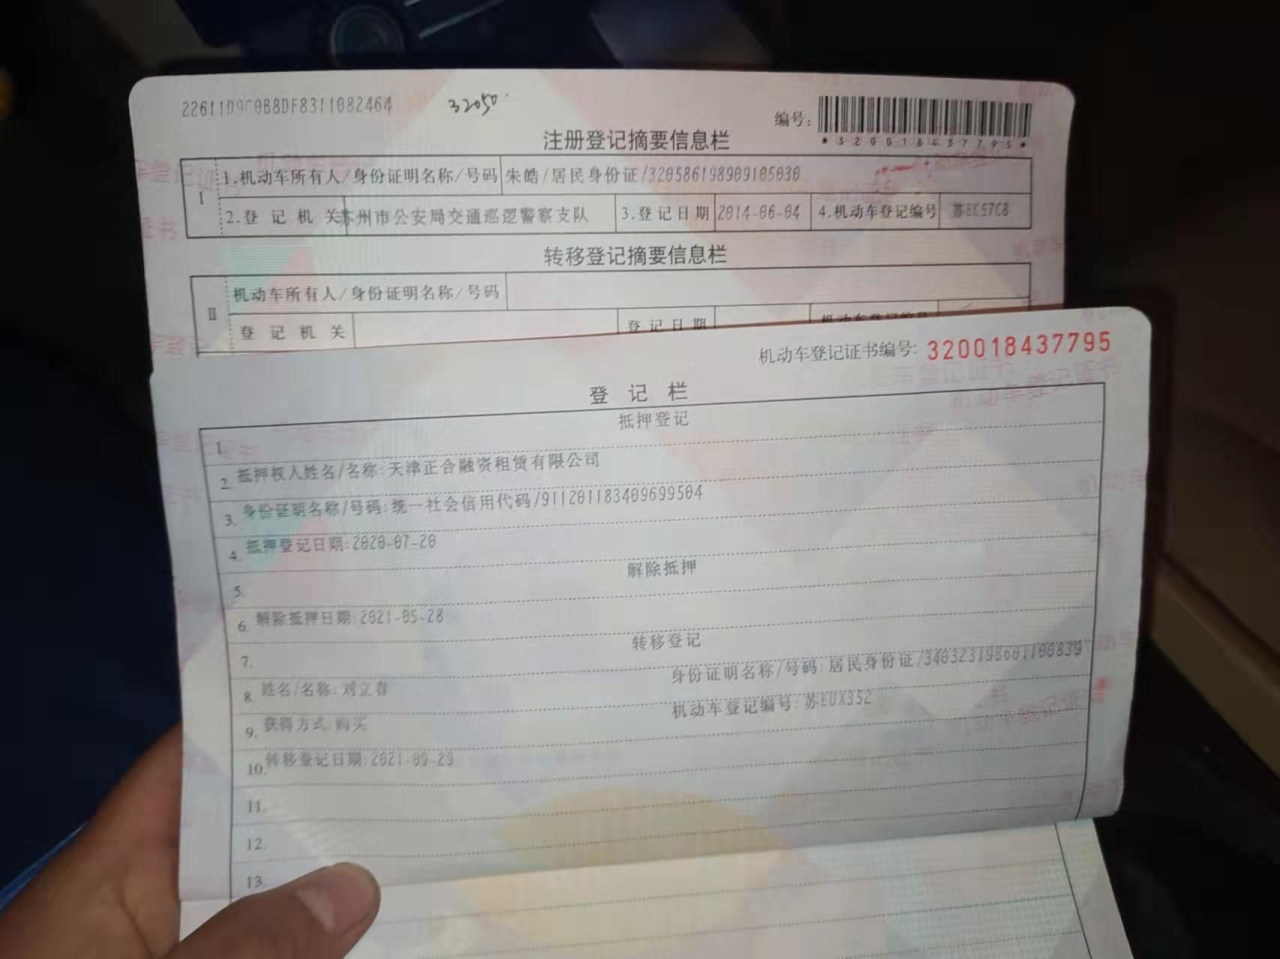 2261109C0B8DF8311082464
32050
编号:
*320018437795*
注册登记摘要信息栏
I
1.机动车所有人/身份证明名称/号码 朱皓/居民身份证/320586198909105030
2.登记机关 苏州市公安局交通巡逻警察支队 3.登记日期 2014-06-04 4.机动车登记编号 苏EC57C8
转移登记摘要信息栏
II
机动车所有人/身份证明名称/号码
登记机关 登记日期 机动车登记编号
机动车登记证书编号: 320018437795
登记栏
1. 抵押登记
2. 抵押权人姓名/名称:天津正合融资租赁有限公司
3. 身份证明名称/号码:统一社会信用代码/911201183409699504
4. 抵押登记日期:2020-07-20
5. 解除抵押
6. 解除抵押日期:2021-05-28
7. 转移登记
8. 姓名/名称:刘立春 身份证明名称/号码:居民身份证/340323198601100830
9. 获得方式:购买 机动车登记编号:苏EUX352
10. 转移登记日期:2021-09-29
11.
12.
13.